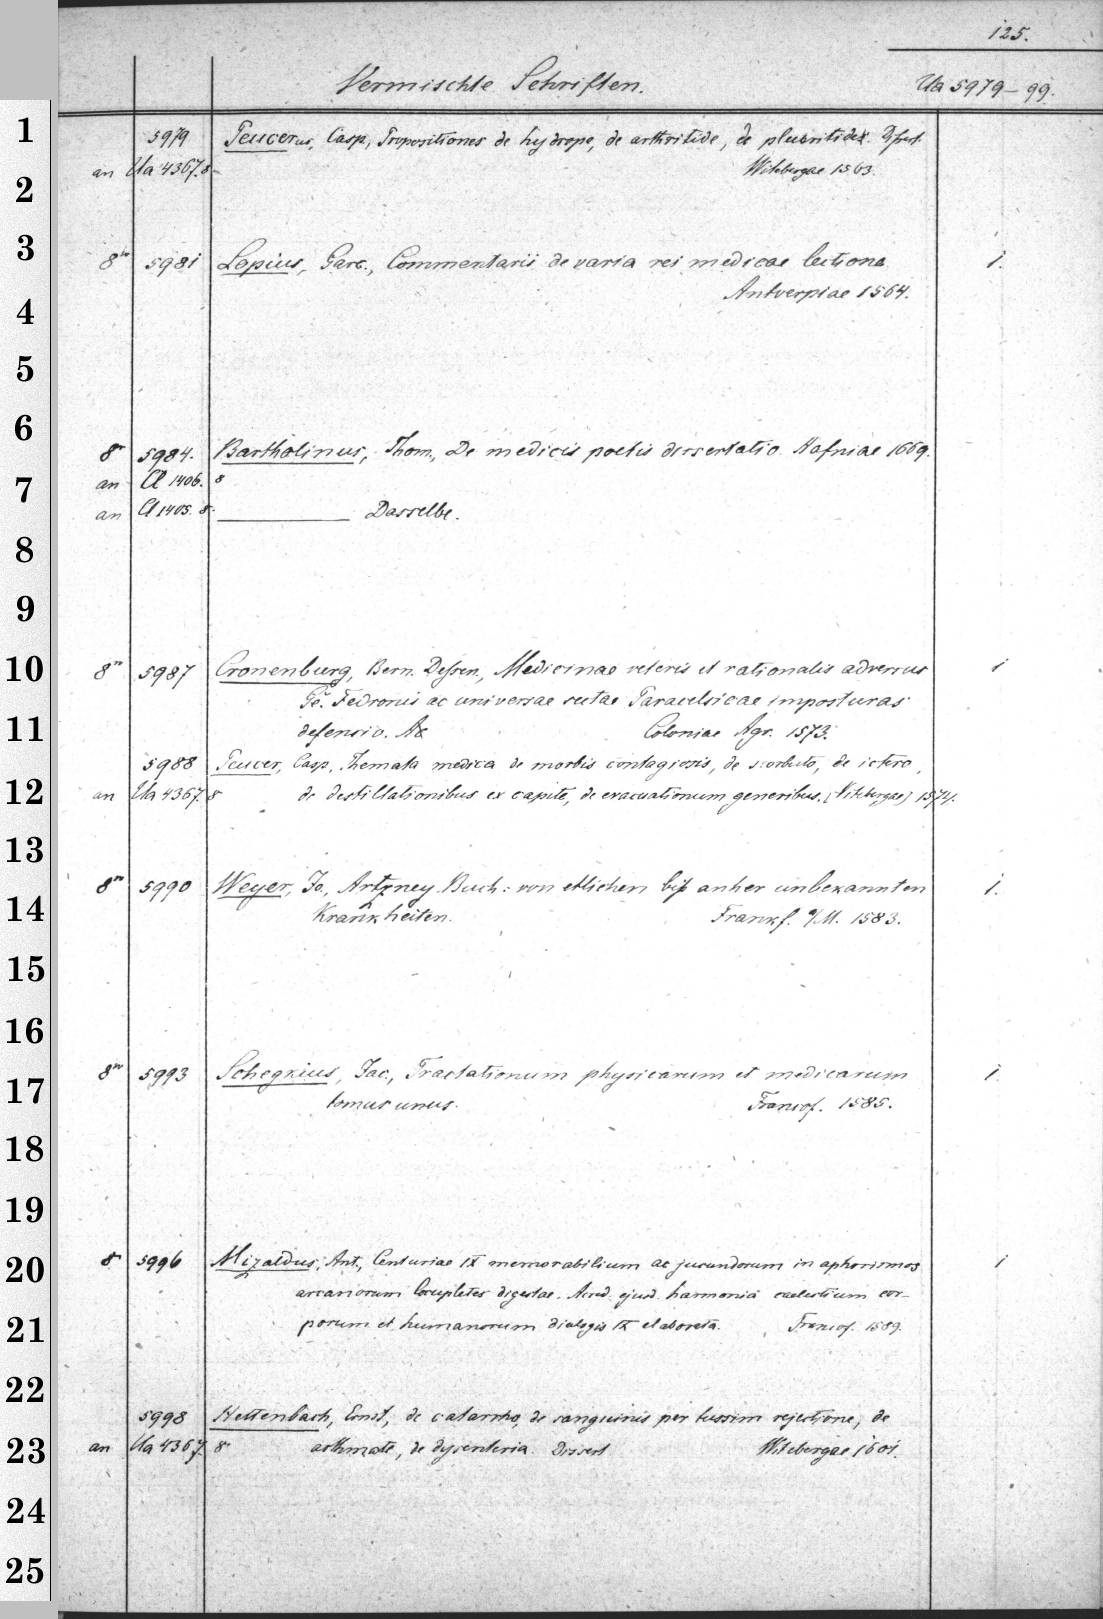 125.
Vermischte Schriften. Ua 5979-99.
1
5979 Peucerus, Casp., Propositiones de hydrope, de arthritide, de pleuritide. Dissert.
an Ua 4367. 8- Witebergae 1563.
2
3
8° 5981 Lopius, Garc., Commentarii de varia rei medicae lectione 1.
Antverpiae 1564.
4
5
6
8° 5984. Bartholinus, Thom., De medicis poetis dissertatio. Hafniae 1669.
an Cl 1406. 8
7
an Cl 1405. 8. Dasselbe.
8
9
10
8° 5987 Cronenburg, Bern. Dessen., Medicinae veteris et rationalis adversus 1
Ge. Fedronis ac universae sectae Paracelsicae imposturas
11
defensio. Coloniae Agr. 1573.
5988 Peucer, Casp., Themata medica de morbis contagiosis, de scorbuto, de ictero,
12
an Ua 4367. 8 de destillationibus ex capite, de evacuationum generibus. [Witebergae] 1574.
13
8° 5990 Weyer, Jo., Artzney Buch: von etlichen biß anher unbekannten 1.
14
Krankheiten. Frankf. a/M. 1583.
15
16
8° 5993 Schegkius, Jac., Tractationum physicarum et medicarum 1
17
tomus unus. Francof. 1585.
18
19
20
8° 5996 Mizaldus, Ant., Centuriae IX memorabilium ac jucundorum in aphorismos 1
arcanorum locupletes digestae. Acced. ejusd. harmonia caelestium cor-
21
porum et humanorum dialogis IX elaborata. Francof. 1589.
22
5998 Hettenbach, Ernst, de catarrho, de sanguinis per tussim rejectione, de
23
an Ua 4367. 8° asthmate, de dysenteria. Dissert Witebergae 1601.
24
25